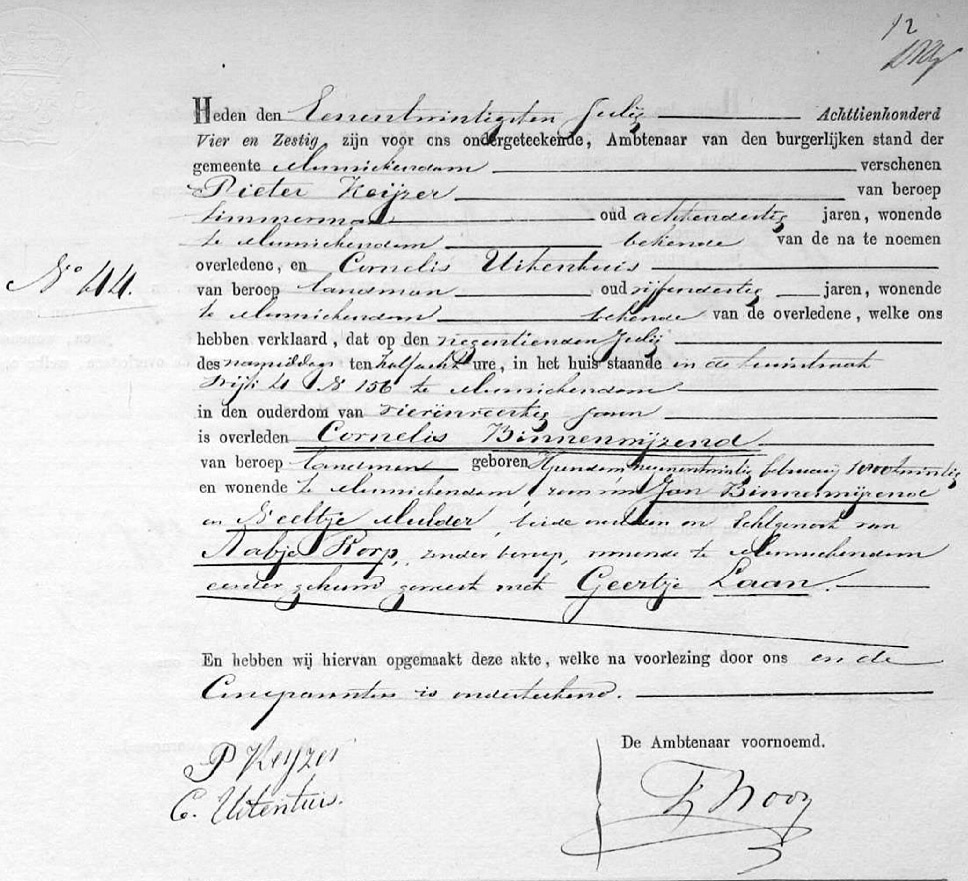 12
Heden den Eenentwintigsten Julij Achttienhonderd
Vier en Zestig zijn voor ons ondergeteekende, Ambtenaar van den burgerlijken stand der
gemeente Monnickendam verschenen
Pieter Keijzer van beroep
timmerman oud achtendertig jaren, wonende
te Monnickendam bekende van de na te noemen
overledene, en Cornelis Uitenhuis
No 44.
van beroep landman oud vijfendertig jaren, wonende
te Monnickendam bekende van de overledene, welke ons
hebben verklaard, dat op den negentienden Julij
des namiddags ten half acht ure, in het huis staande in de
Wijk 4 N 156 te Monnickendam
in den ouderdom van vierenveertig jaren
is overleden Cornelis Binnenwijzend.
van beroep landman geboren februarij
en wonende te Monnickendam, zoon van Jan Binnenwijzend
en Neeltje Mulder, beide overleden en Echtgenoot van
Aabje Korp, zonder beroep, wonende te Monnickendam
eerder gehuwd geweest met Geertje Laan.
En hebben wij hiervan opgemaakt deze akte, welke na voorlezing door ons en de
Comparanten is onderteekend.
De Ambtenaar voornoemd.
P Keyzer
C. Uitentuis.